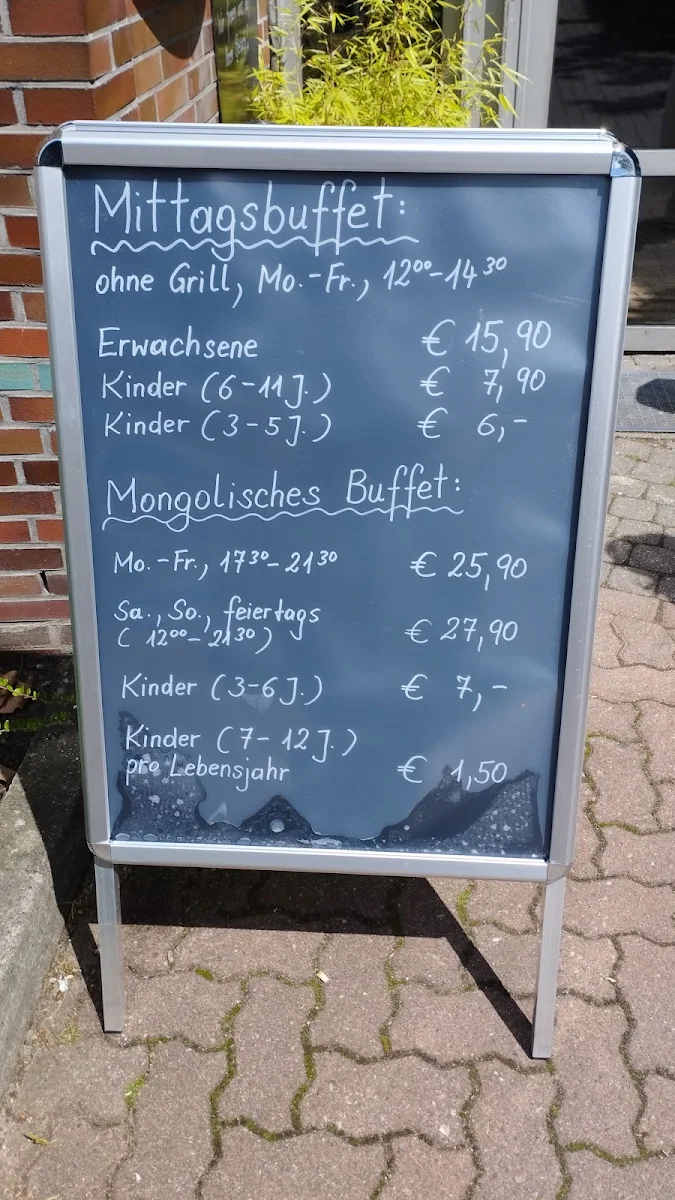 Mittagsbuffet:
ohne Grill, Mo.-Fr., 12⁰⁰-14³⁰
Erwachsene € 15,90
Kinder (6-11 J.) € 7,90
Kinder (3-5 J.) € 6,-
Mongolisches Buffet:
Mo.-Fr., 17³⁰-21³⁰ € 25,90
Sa., So., feiertags
(12⁰⁰-21³⁰) € 27,90
Kinder (3-6 J.) € 7,-
Kinder (7-12 J.)
pro Lebensjahr € 1,50